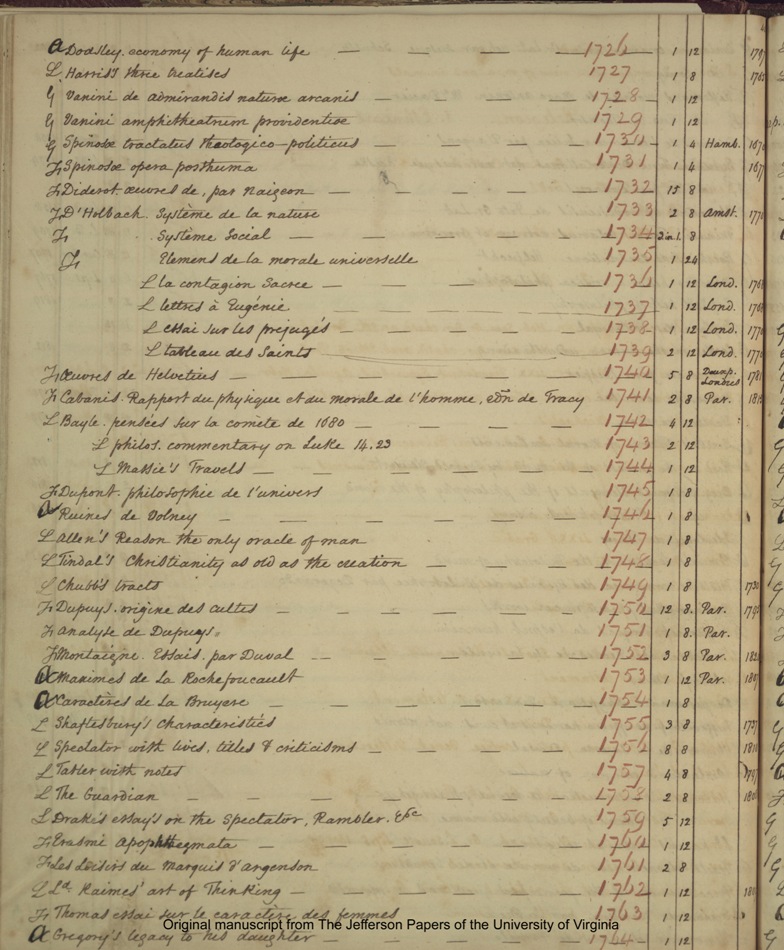 a Dodsley. economy of human life — — — — 1726 1 12 179
L Harris's three treatises 1727 1 8 1765
G Vanini de admirandis naturae arcanis — — — — 1728 1 12
G Vanini amphitheatrum providentiae 1729 1 12
G Spinosae tractatus theologico-politicus — — — — 1730 1 4 Hamb. 1670
F Spinosae opera posthuma 1731 1 4 167
F Diderot œuvres de, par Naigeon — — — — 1732 15 8
F D'Holbach. Système de la nature 1733 2 8 Amst. 1770
F . Système Social — — — — 1734 2 in 1. 8
F Element de la morale universelle 1735 1 24
L la contagion Sacree — — — 1736 1 12 Lond. 176
L lettres à Eugénie 1737 1 12 Lond. 176
L essai sur les prejugés — — — 1738 1 12 Lond. 1770
L tableau des Saints 1739 2 12 Lond. 1770
F Œuvres de Helvetius — — — — 1740 5 8 Deuxp. Londres 1781
F Cabanis. Rapport du physique et du morale de l'homme, edn de Tracy 1741 2 8 Par. 181
L Bayle. pensées sur la comete de 1680 — — — 1742 4 12
L philos. commentary on Luke 14.23 1743 2 12
L Massie's Travels — — — — 1744 1 12
F Dupont. philosophie de l'univers 1745 1 8
a Ruines de Volney — — — — 1746 1 8
L Allen's Reason the only oracle of man 1747 1 8
L Tindal's Christianity as old as the creation — — — 1748 1 8
L Chubb's tracts 1749 1 8 1730
F Dupuys. origine des cultes — — — — 1750 12 8. Par. 179
F Analyse de Dupuys. 1751 1 8. Par.
F Montaigne. Essais. par Duval — — — — 1752 3 8 Par. 182
a Maximes de La Rochefoucault 1753 1 12 Par. 180
a Caractères de La Bruyere — — — — 1754 1 8
L Shaftesbury's Characteristics 1755 3 8 1737
L Spectator with lives, titles & criticisms — — — 1756 8 8 181
L Tatler with notes 1757 4 8 1797
L The Guardian — — — — 1758 2 8 180
L Drake's essays on the Spectator, Rambler. &c 1759 5 12
F Erasmi Apophthegmata — — — — 1760 1 12
F Les Loisirs du Marquis d'Argenson 1761 2 8
L Ld. Kaimes' art of Thinking — — — — 1762 1 12 18
F Thomas essai sur le caractère des femmes 1763 1 12
a Gregory's legacy to his daughter — — — 1764 1 12
Original manuscript from The Jefferson Papers of the University of Virginia